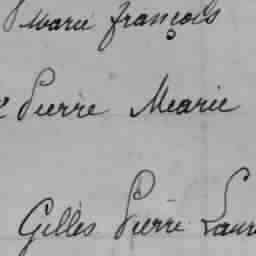 Marie françois
Pierre Mearie
Gilles Pierre Laur